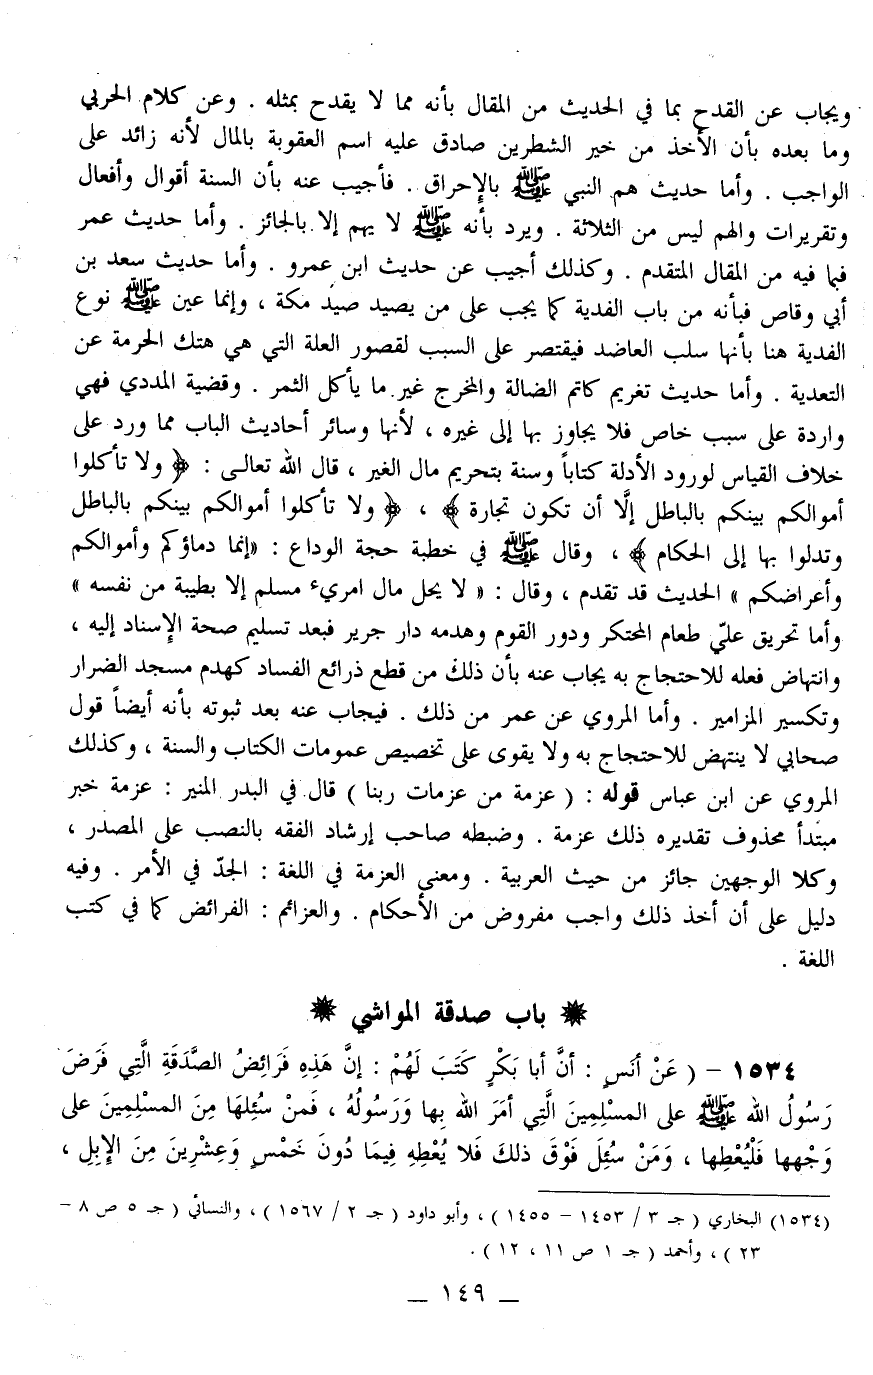 ويجاب عن القدح بما في الحديث من المقال بأنه مما لا يقدح بمثله . وعن كلام الحربي
وما بعده بأن الأخذ من خير الشطرين صادق عليه اسم العقوبة بالمال لأنه زائد على
الواجب . وأما حديث هم النبي ﷺ بالإحراق . فأجيب عنه بأن السنة أقوال وأفعال
وتقريرات والهم ليس من الثلاثة . ويرد بأنه ﷺ لا يهم إلا بالجائز . وأما حديث عمر
فبما فيه من المقال المتقدم . وكذلك أجيب عن حديث ابن عمرو . وأما حديث سعد بن
أبي وقاص فبأنه من باب الفدية كما يجب على من يصيد صيد مكة ، وإنما عين ﷺ نوع
الفدية هنا بأنها سلب العاضد فيقتصر على السبب لقصور العلة التي هي هتك الحرمة عن
التعدية . وأما حديث تغريم كاتم الضالة والمخرج غير ما يأكل الثمر . وقضية المددي فهي
واردة على سبب خاص فلا يجاوز بها إلى غيره ، لأنها وسائر أحاديث الباب مما ورد على
خلاف القياس لورود الأدلة كتاباً وسنة بتحريم مال الغير ، قال الله تعالى : ﴿ ولا تأكلوا
أموالكم بينكم بالباطل إلَّا أن تكون تجارة ﴾ ، ﴿ ولا تأكلوا أموالكم بينكم بالباطل
وتدلوا بها إلى الحكام ﴾ ، وقال ﷺ في خطبة حجة الوداع : «إنما دماؤكم وأموالكم
وأعراضكم » الحديث قد تقدم ، وقال : « لا يحل مال امريء مسلم إلا بطيبة من نفسه »
وأما تحريق عليّ طعام المحتكر ودور القوم وهدمه دار جرير فبعد تسليم صحة الإسناد إليه ،
وانتهاض فعله للاحتجاج به يجاب عنه بأن ذلك من قطع ذرائع الفساد كهدم مسجد الضرار
وتكسير المزامير . وأما المروي عن عمر من ذلك . فيجاب عنه بعد ثبوته بأنه أيضاً قول
صحابي لا ينتهض للاحتجاج به ولا يقوى على تخصيص عمومات الكتاب والسنة ، وكذلك
المروي عن ابن عباس قوله : ( عزمة من عزمات ربنا ) قال في البدر المنير : عزمة خبر
مبتدأ محذوف تقديره ذلك عزمة . وضبطه صاحب إرشاد الفقه بالنصب على المصدر ،
وكلا الوجهين جائز من حيث العربية . ومعنى العزمة في اللغة : الجدّ في الأمر . وفيه
دليل على أن أخذ ذلك واجب مفروض من الأحكام . والعزائم : الفرائض كما في كتب
اللغة .
باب صدقة المواشي
١٥٣٤ - ( عَنْ أنَسٍ : أنَّ أبا بَكْرٍ كَتَبَ لَهُمْ : إنَّ هَذِهِ فَرَائِضُ الصَّدَقَةِ الَّتِي فَرَضَ
رَسُولُ الله ﷺ على المسْلِمِينَ الَّتِي أمَرَ الله بِها وَرَسُولُهُ ، فَمنْ سُئِلهَا مِنَ المسْلِمِينَ على
وَجْهِها فَلْيُعْطِها ، وَمَنْ سُئِلَ فَوْقَ ذلكَ فَلا يُعْطِهِ فِيمَا دُونَ خَمْسٍ وَعِشْرِينَ مِنَ الإبِلِ ،
(١٥٣٤) البخاري ( جـ ٣ / ١٤٥٣ - ١٤٥٥ ) ، وأبو داود ( جـ ٢ / ١٥٦٧ ) ، والنسائي ( جـ ٥ ص ٨ -
٢٣ ) ، وأحمد ( جـ ١ ص ١١ ، ١٢ ) .
_ ١٤٩ _